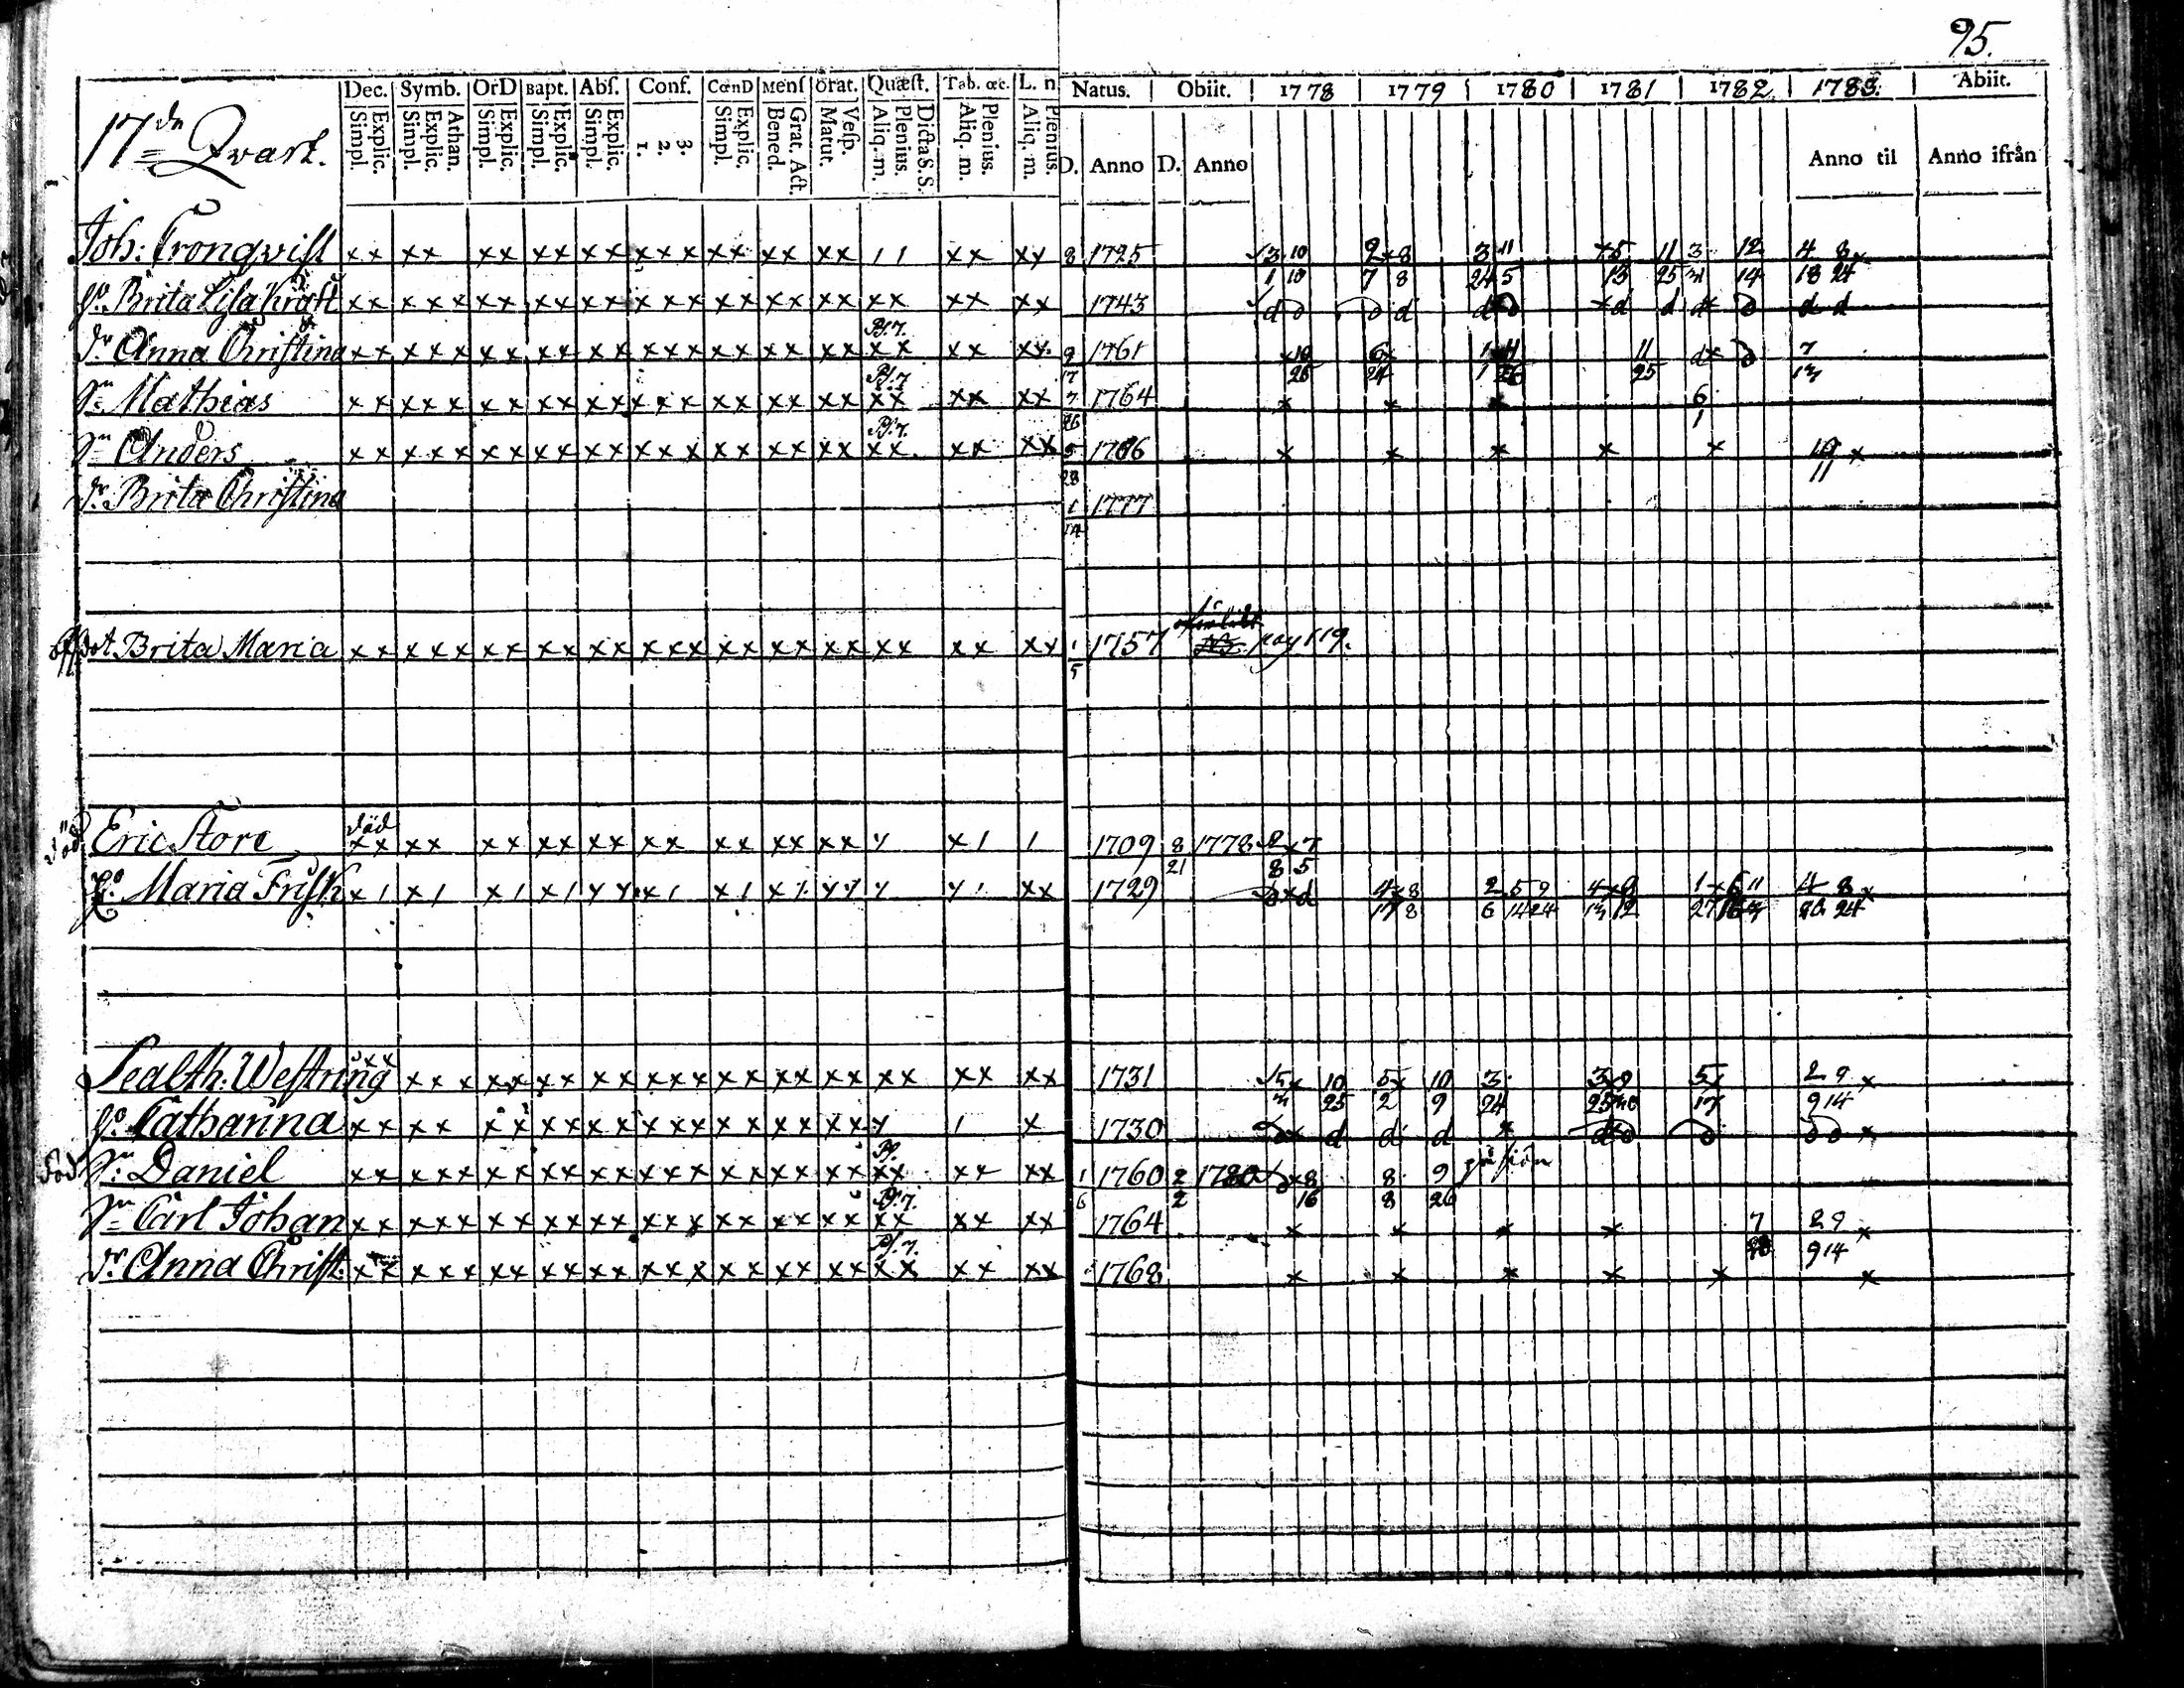 95.
Dec. Symb. OrD Bapt. Abſ. Conf. CœnD Menſ Orat. Quæſt. Tab. œc. L. n Natus. Obiit. 1778 1779 1780 1781 1782. 1783. Abiit.
Explic. Simpl. Athan. Explic. Simpl. Explic. Simpl. Explic. Simpl. Explic. Simpl. 3. 2. 1. Explic. Simpl. Grat. Act. Bened. Veſp. Matut. Dicta S. S. Plenius. Aliq. m. Plenius. Aliq. m. Plenius. Aliq. m.
17de Qvart. D. Anno D. Anno Anno til Anno ifrån
Joh: Cronqviſt xx xx xx xx xx xxx xx xx xx 11 xx xx 8 1725 3 10 2x8 3 11 x5 11 3 12 4 8x
1 10 7 8 24 5 13 25 14 18 24
Brita Liſa Kraft xx xxx xx xx xx xxx xx xx xx xx xx xx 1743 d d d d d x d d d d
Pſ. 7.
dr Anna Chriſtina xx xxx xx xx xx xxx xx xx xx xx xx xx 9 1761 x10 6x 11 dx 7
17 26 24 1 26 25
Pſ. 7
Sn Mathias xx xxx xx xx xx xxx xx xx xx xx xx xx 7 1764 x x x 6
26 1
Pſ. 7.
Sn Anders xx xxx xx xx xx xxx xx xx xx xx xx xx 5 1766 x x x x x 10 x
28 11
dr: Brita Chriſtina 1 1777
14
Brita Maria xx xxx xx xx xx xxx xx xx xx xx xx xx 1 1757 pag 119.
5
död
död Eric Store xx xx xx xx xx xx xx xx xx x1 1 1709 8 1778 2x7
21 8 5
Maria Friſk x1 x1 x1 x1 x1 x1 xx 1729 x d 4x8 2 5 9 4x9 1x6 11 4 8x
17 8 6 14 24 12 24
xx
Sealth: Weſtring xxx xx xx xx xxx xx xx xx xx xx xx 1731 5x 10 5x 10 3 3x9 5x 2 9 x
25 2 9 24 17 9 14
Catharina xx xx xx xx xx xxx xx xx xx 1 x 1730 x d d d x x
Pſ. på ſiön
död Sn: Daniel xx xxx xx xx xx xxx xx xx xx xx xx xx 1 1760 2 1780 x8 8 9
6 2 16 8 26
Pſ. 7.
Sn Carl Johan xx xxx xx xx xx xxx xx xx xx xx xx xx 1764 x x x x 7 2 9 x
9 14
Pſ. 7.
dr. Anna Chriſt: xx xxx xx xx xx xxx xx xx xx xx xx xx 1768 x x x x x x